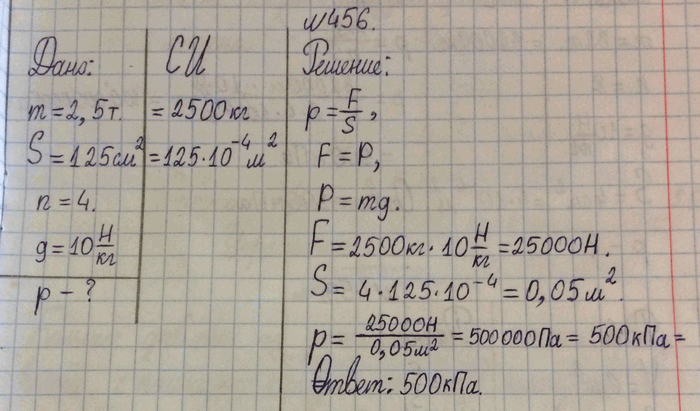 №456.
Дано:
m = 2,5т.
S = 125см²
n = 4.
g = 10 Н/кг
p - ?
СИ
= 2500кг
= 125·10⁻⁴м²
Решение:
p = F/S,
F = P,
P = mg.
F = 2500кг · 10 Н/кг = 25000Н.
S = 4·125·10⁻⁴ = 0,05м².
p = 25000Н/0,05м² = 500000Па = 500кПа =
Ответ: 500кПа.